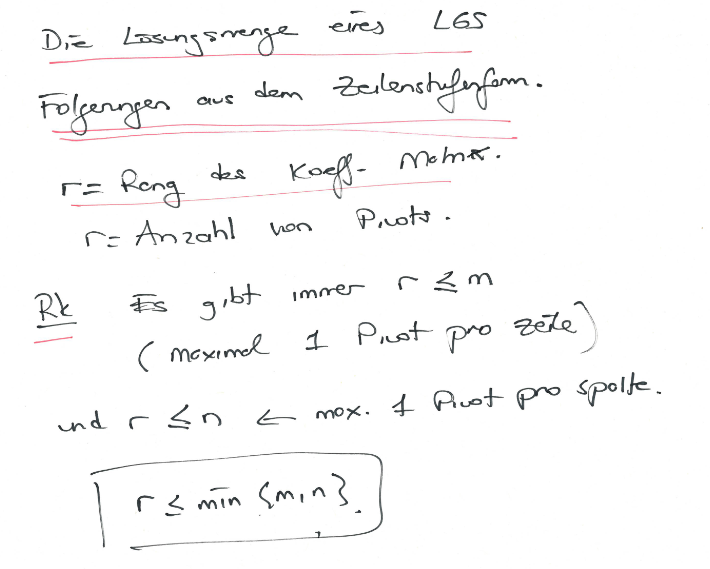 Die Lösungsmenge eines LGS
Folgerungen aus dem Zeilenstufenform.
r = Rang des Koeff- Matrix.
r = Anzahl von Pivots.
Rk Es gibt immer r ≤ m
(maximal 1 Pivot pro Zeile)
und r ≤ n ← max. 1 Pivot pro Spalte.
r ≤ min {m, n}.